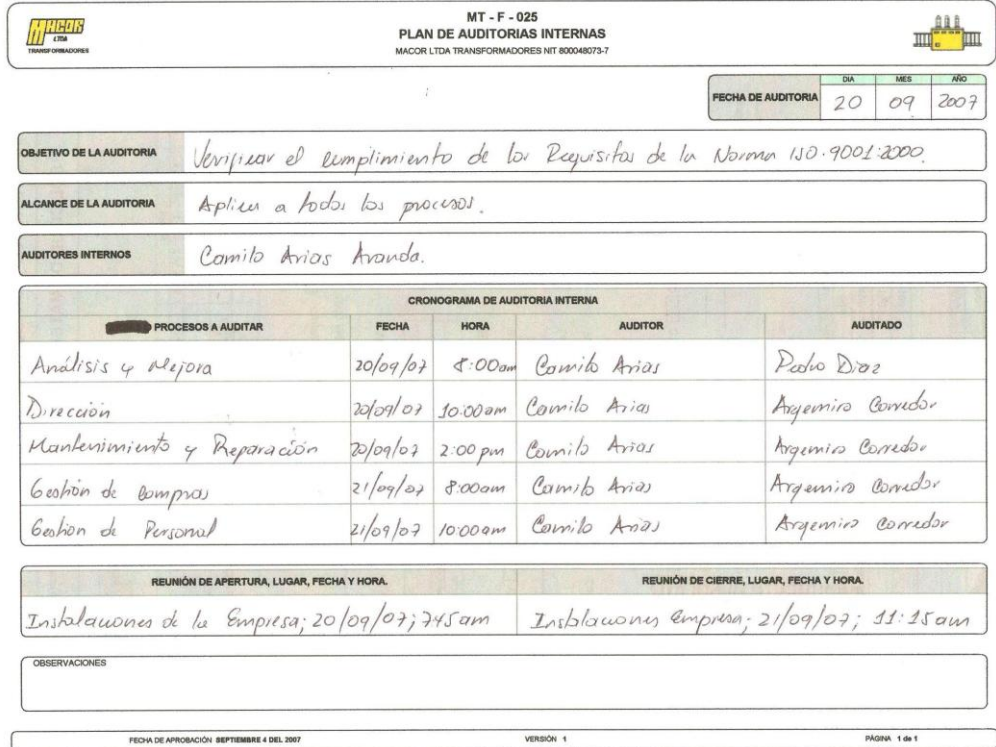 MACOR
LTDA
TRANSFORMADORES
MT - F - 025
PLAN DE AUDITORIAS INTERNAS
MACOR LTDA TRANSFORMADORES NIT 800048073-7
FECHA DE AUDITORIA DIA MES AÑO
20 09 2007
OBJETIVO DE LA AUDITORIA Verificar el cumplimiento de los Requisitos de la Norma ISO.9001:2000.
ALCANCE DE LA AUDITORIA Aplica a todos los procesos.
AUDITORES INTERNOS Camilo Arias Aranda.
CRONOGRAMA DE AUDITORIA INTERNA
PROCESOS A AUDITAR FECHA HORA AUDITOR AUDITADO
Análisis y Mejora 20/09/07 8:00am Camilo Arias Pedro Diaz
Dirección 20/09/07 10:00am Camilo Arias Argemiro Corredor
Mantenimiento y Reparación 20/09/07 2:00 pm Camilo Arias Argemiro Corredor
Gestión de Compras 21/09/07 8:00am Camilo Arias Argemiro Corredor
Gestion de Personal 21/09/07 10:00am Camilo Arias Argemiro Corredor
REUNIÓN DE APERTURA, LUGAR, FECHA Y HORA. REUNIÓN DE CIERRE, LUGAR, FECHA Y HORA.
Instalaciones de la Empresa; 20/09/07; 745am Instalaciones empresa; 21/09/07; 11:15am
OBSERVACIONES
FECHA DE APROBACIÓN SEPTIEMBRE 4 DEL 2007 VERSIÓN 1 PÁGINA 1 de 1